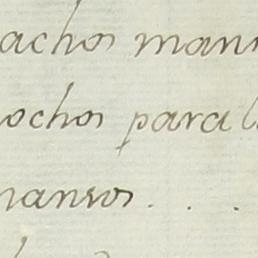 achos man
ochos para l
mansos . . .